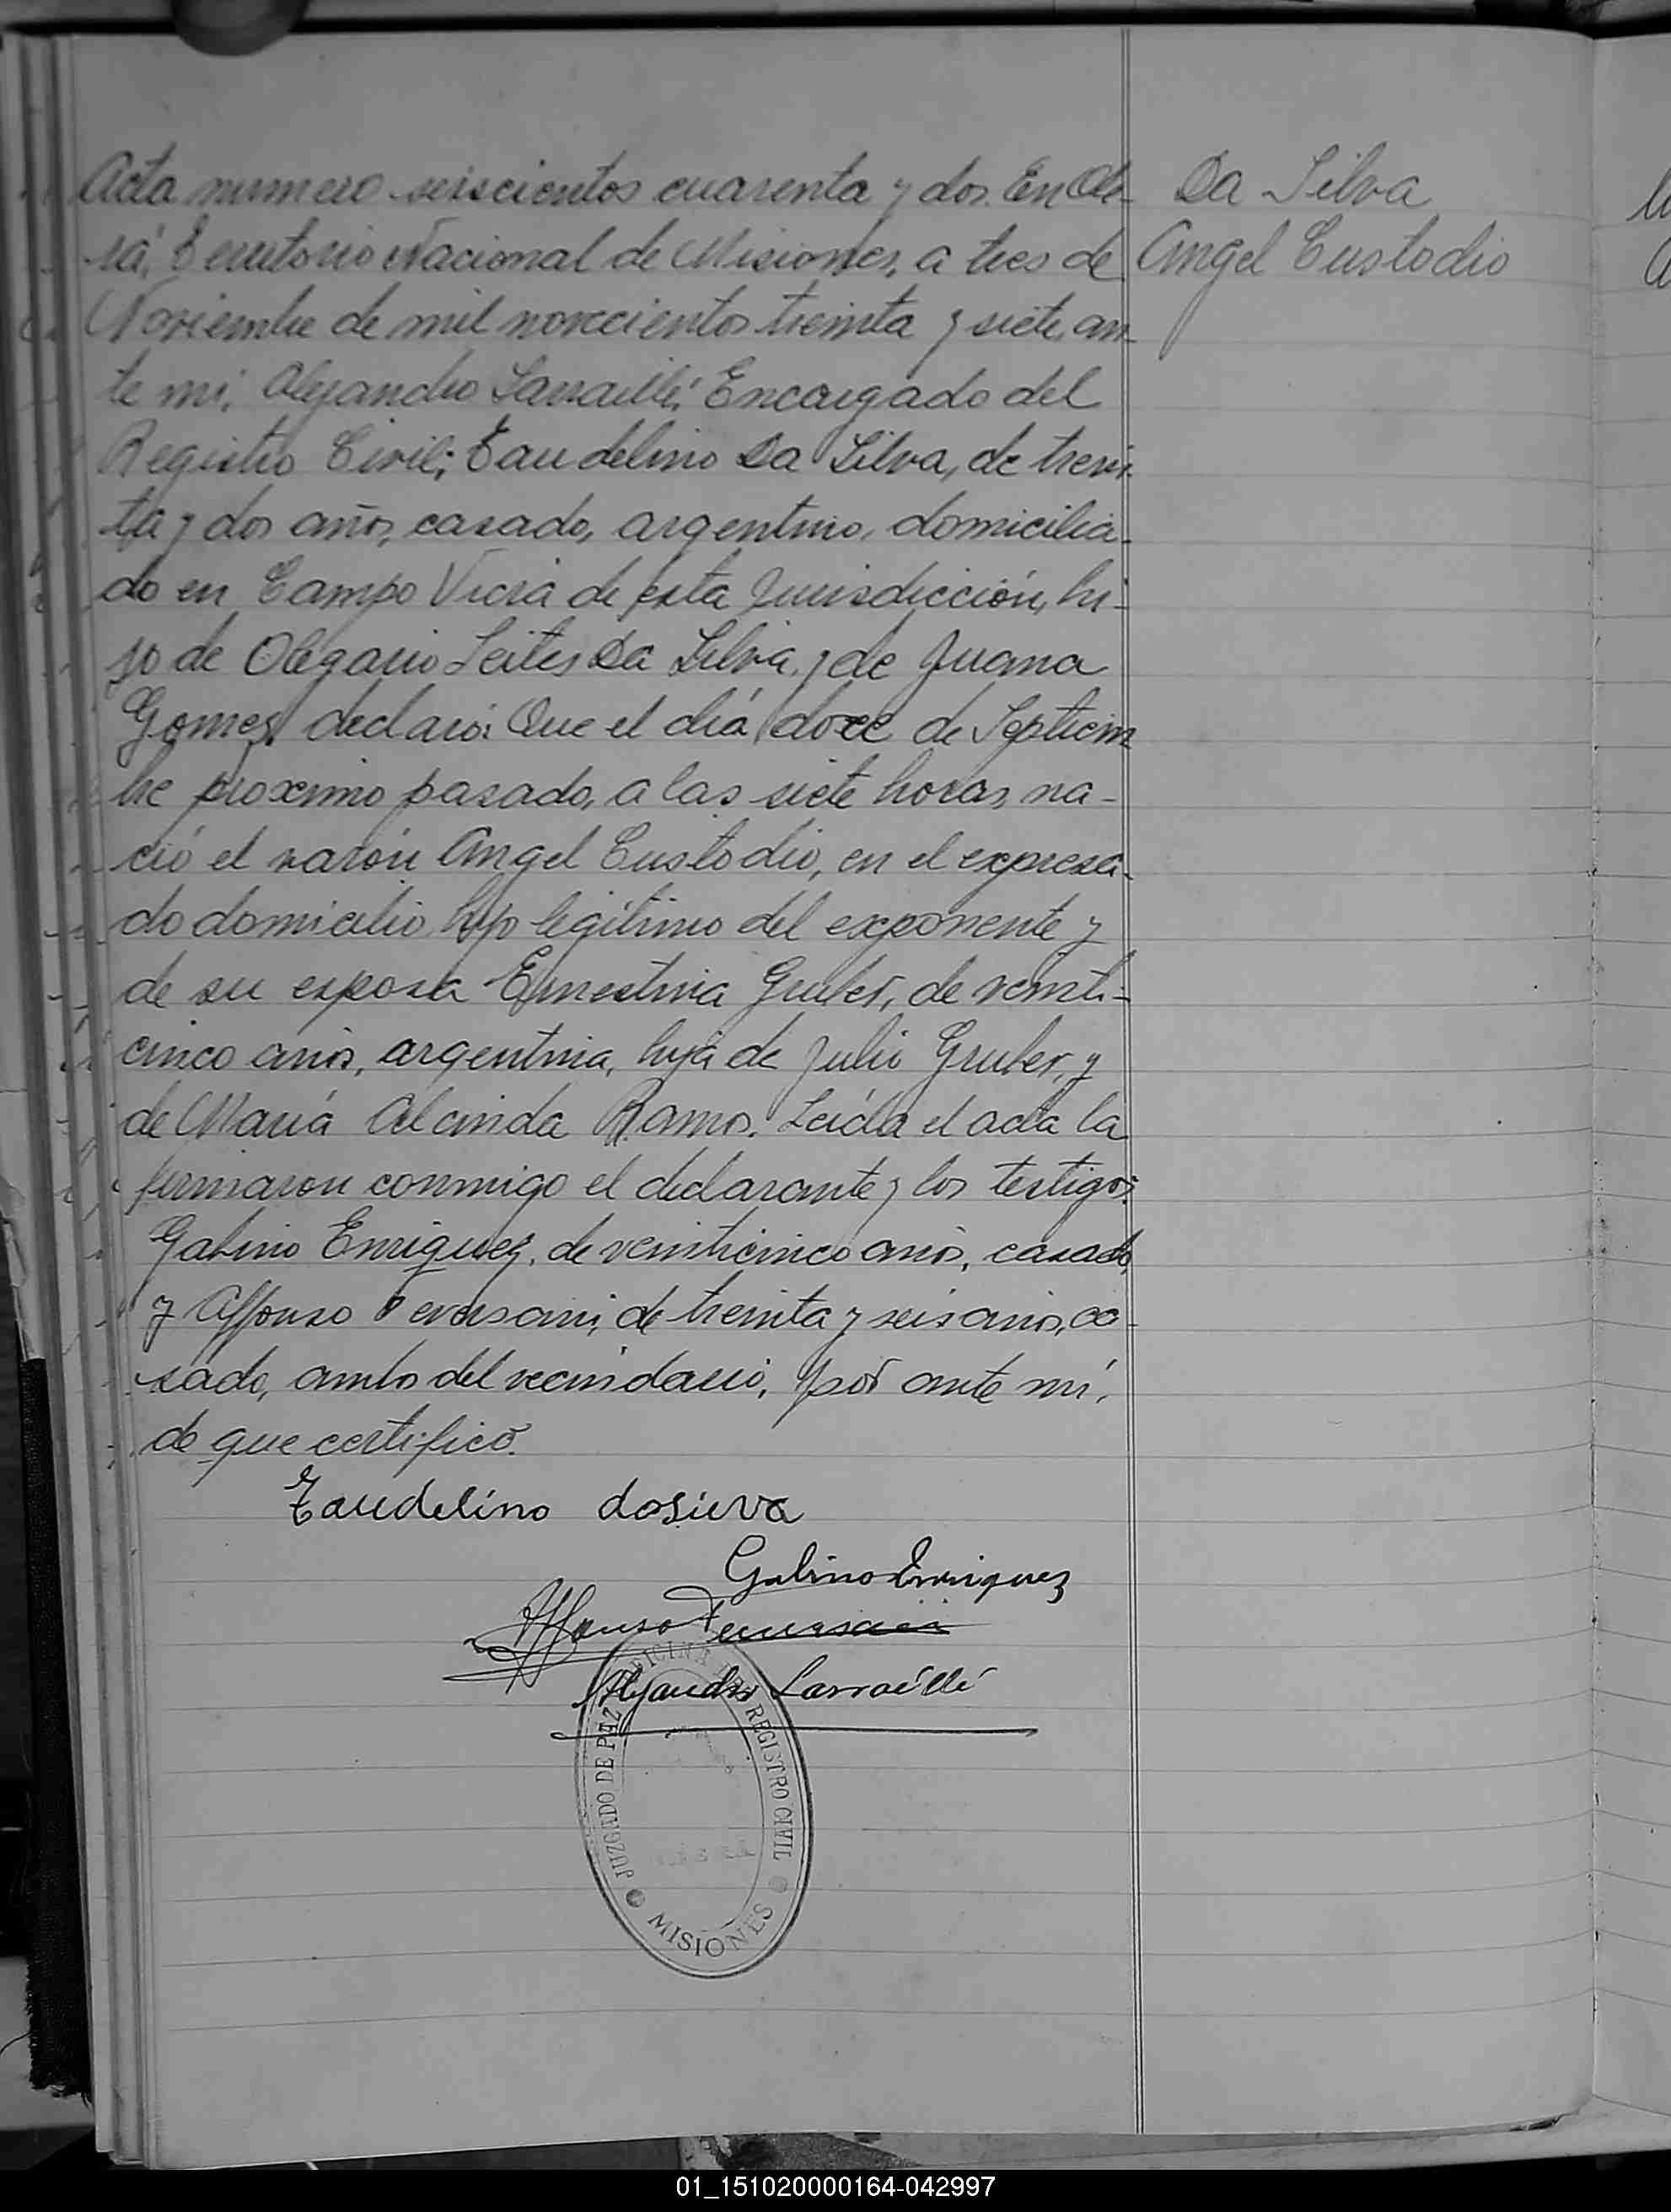 Acta numero seiscientos cuarenta y dos. En Obe-
rá, Territorio Nacional de Misiones, a tres de
Noviembre de mil novecientos treinta y siete, an-
te mí, Alejandro Larraillé, Encargado del
Registro Civil; Taudelino Da Silva, de trein-
ta y dos años, casado, argentino, domicilia-
do en Campo Viera de esta Jurisdicción, hi-
jo de Olegario Leites Da Silva, y de Juana
Gomes, declaró: Que el día doce de Septiem
bre próximo pasado, a las siete horas, na-
ció el varón Angel Custodio, en el expresa-
do domicilio, hijo legítimo del exponente y
de su esposa Ernestina Gruber, de veinti-
cinco años, argentina, hija de Julio Gruber, y
de María Alcinda Ramos. Leída el acta la
firmaron conmigo el declarante y los testigos:
Gabino Enriquez, de veinticinco años, casado,
y Affonso de treinta y seis años, ca-
sado, ambos del vecindario, por ante mí,
de que certifico.
Taudelino dasilva
Gabino Enriquez
Affonso
Alejandro Larraillé
OFICINA DEL REGISTRO CIVIL
JUZGADO DE PAZ
MISIONES
Da Silva
Angel Custodio
01_151020000164-042997